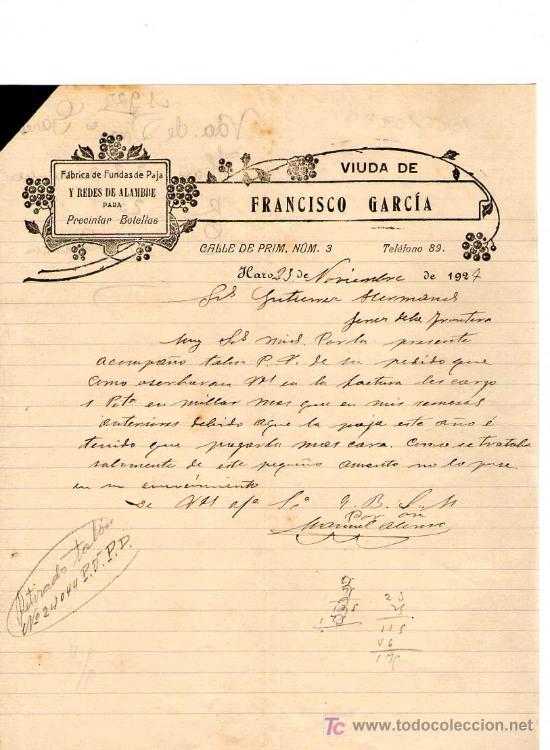 Fábrica de Fundas de Paja
Y REDES DE ALAMBRE
PARA
Precintar Botellas
VIUDA DE
FRANCISCO GARCÍA
CALLE DE PRIM, NÚM. 3 Teléfono 89.
Haro 23 de Noviembre de 1927
Srs Gutierrez Hermanos
Jerez de la Frontera
Muy Srs mios. Por la presente
acompaño talon P. V. de su pedido que
como oserbaran Vds en la factura les cargo
1 Pta en millar mas que en mis remesas
anteriores debido aque la paja este año é
tenido que pagarla mas cara. Como se trataba
solamente de este pequeño aumento no lo puse
en su conocimiento
de Vds
Q. B. S. M
Por
Manuel
Retirado talón
Nº 24044 P.V.P.D.
TC www.todocoleccion.net